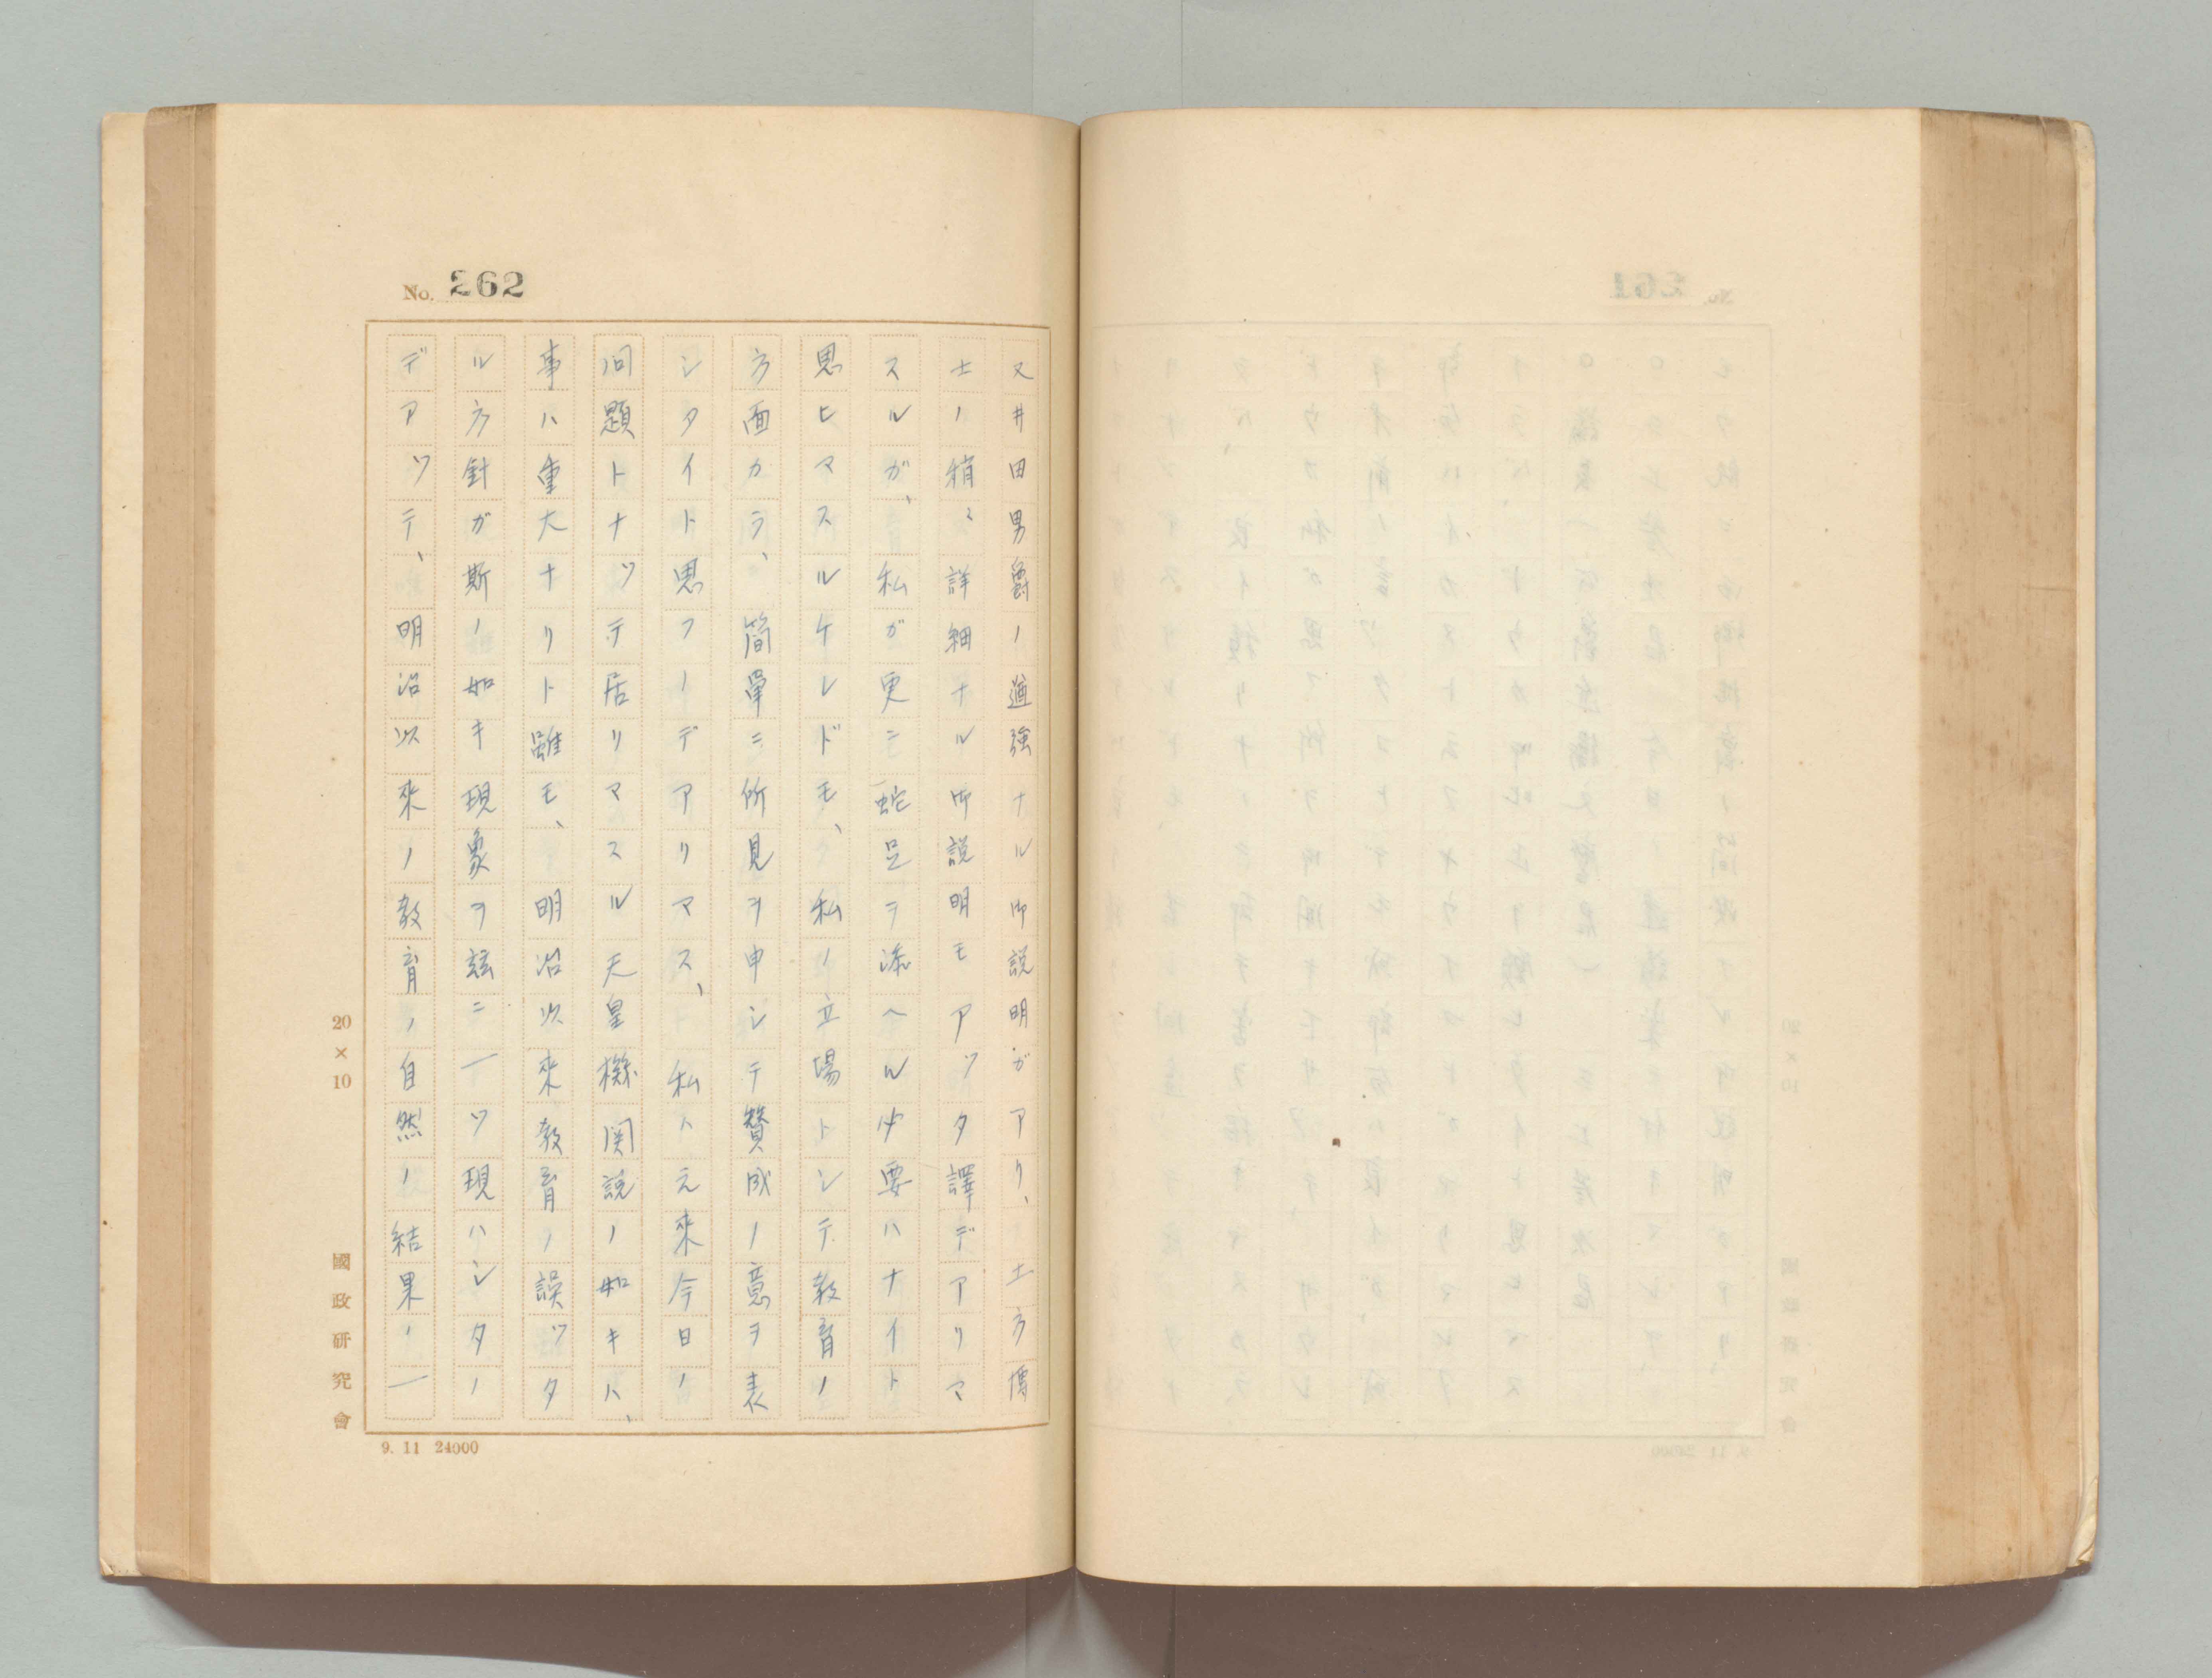 No. 262
又井田男爵ノ遒強ナル御説明ガアリ、土方博
士ノ稍〻詳細ナル御説明モアッタ譯デアリマ
スルガ、私ガ更ニ蛇足ヲ添ヘル必要ハナイト
思ヒマスルケレドモ、私ノ立場トシテ教育ノ
方面カラ、簡單ニ所見ヲ申シテ賛成ノ意ヲ表
シタイト思フノデアリマス、私ハ元來今日ノ
問題トナッテ居リマスル天皇機関説ノ如キハ、
事ハ重大ナリト雖モ、明治以來教育ノ誤ッタ
ル方針ガ斯ノ如キ現象ヲ玆ニ一ツ現ハシタノ
デアッテ、明治以來ノ教育ノ自然ノ結果ノ一
20×10
國政研究會
9. 11 24000